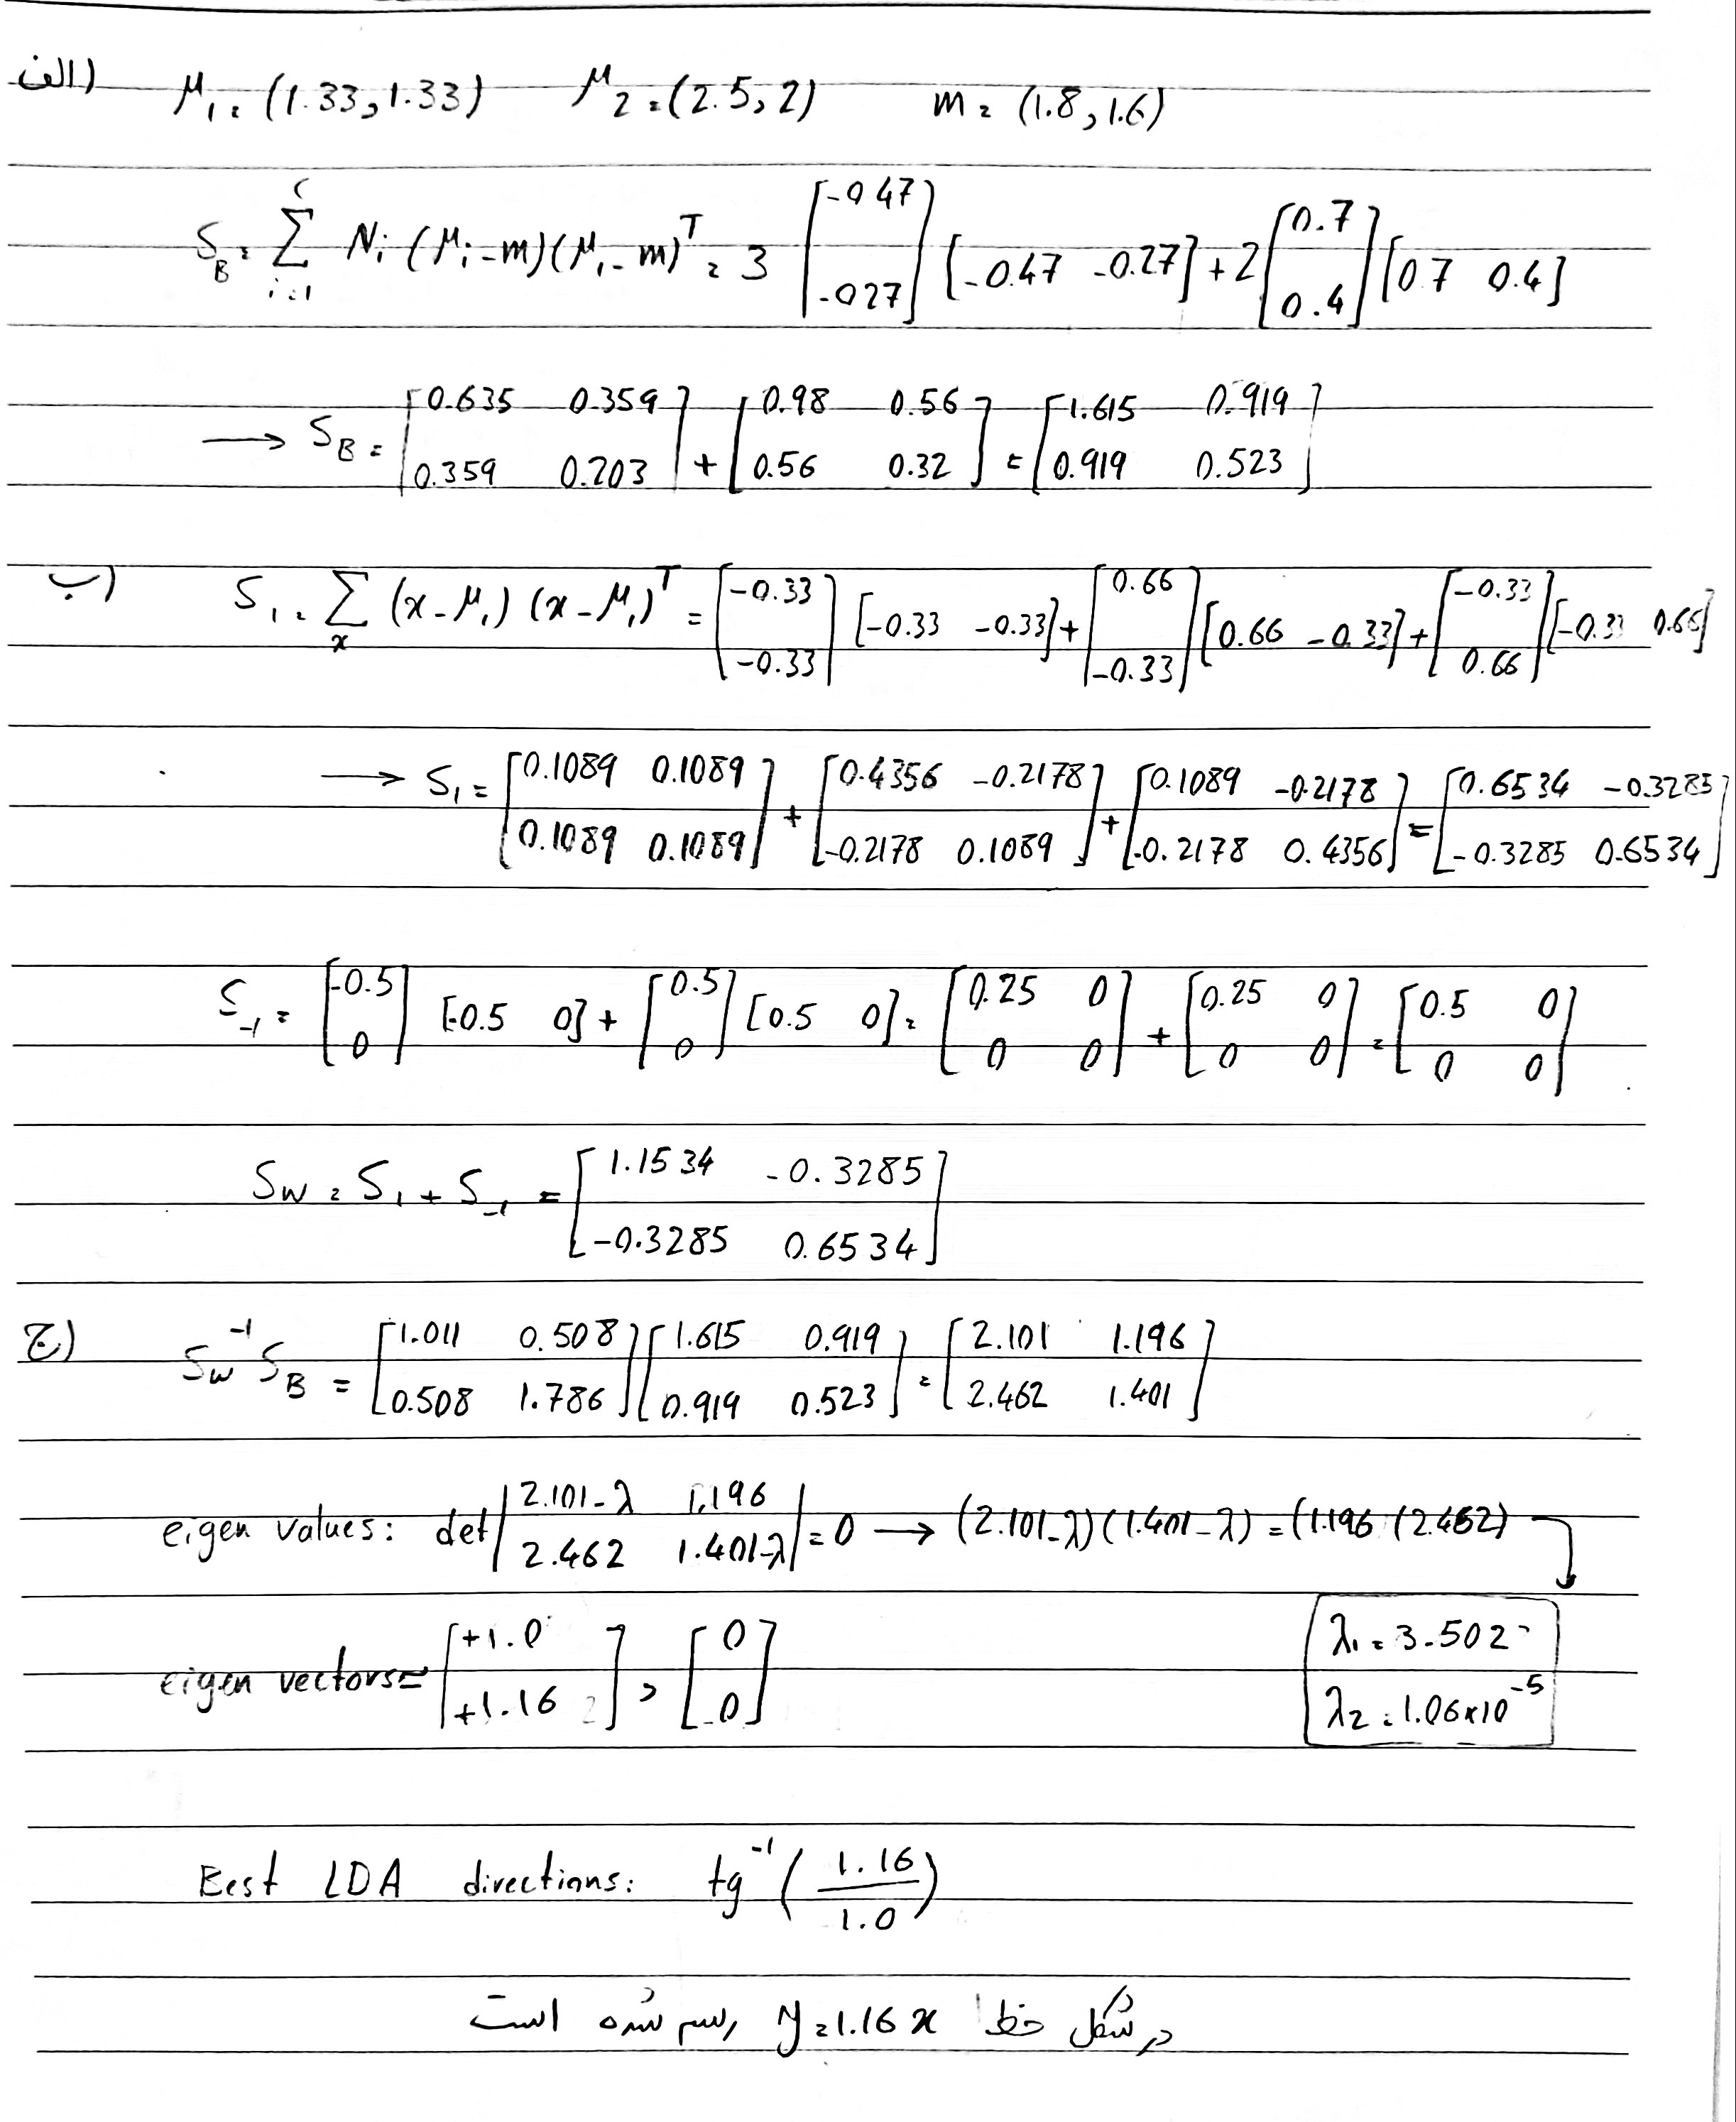 الف) μ₁ = (1.33, 1.33) μ₂ = (2.5, 2) m = (1.8, 1.6)
S_B = Σ_{i=1}^{c} Nᵢ (μᵢ - m)(μᵢ - m)ᵀ = 3 [-0.47; -0.27] [-0.47 -0.27] + 2 [0.7; 0.4] [0.7 0.4]
→ S_B = [0.635 0.359; 0.359 0.203] + [0.98 0.56; 0.56 0.32] = [1.615 0.919; 0.919 0.523]
ب) S₁ = Σ_x (x - μ₁)(x - μ₁)ᵀ = [-0.33; -0.33] [-0.33 -0.33] + [0.66; -0.33] [0.66 -0.33] + [-0.33; 0.66] [-0.33 0.66]
→ S₁ = [0.1089 0.1089; 0.1089 0.1089] + [0.4356 -0.2178; -0.2178 0.1089] + [0.1089 -0.2178; -0.2178 0.4356] = [0.6534 -0.3285; -0.3285 0.6534]
S₋₁ = [-0.5; 0] [-0.5 0] + [0.5; 0] [0.5 0] = [0.25 0; 0 0] + [0.25 0; 0 0] = [0.5 0; 0 0]
S_W = S₁ + S₋₁ = [1.1534 -0.3285; -0.3285 0.6534]
ج) S_W⁻¹ S_B = [1.011 0.508; 0.508 1.786] [1.615 0.919; 0.919 0.523] = [2.101 1.196; 2.462 1.401]
eigen values: det |2.101-λ 1.196; 2.462 1.401-λ| = 0 → (2.101-λ)(1.401-λ) = (1.196 (2.462)
λ₁ = 3.502
λ₂ = 1.06×10⁻⁵
eigen vectors = [+1.0; +1.16], [0; 0]
Best LDA directions: tg⁻¹ (1.16/1.0)
در شکل خط y = 1.16x رسم شده است